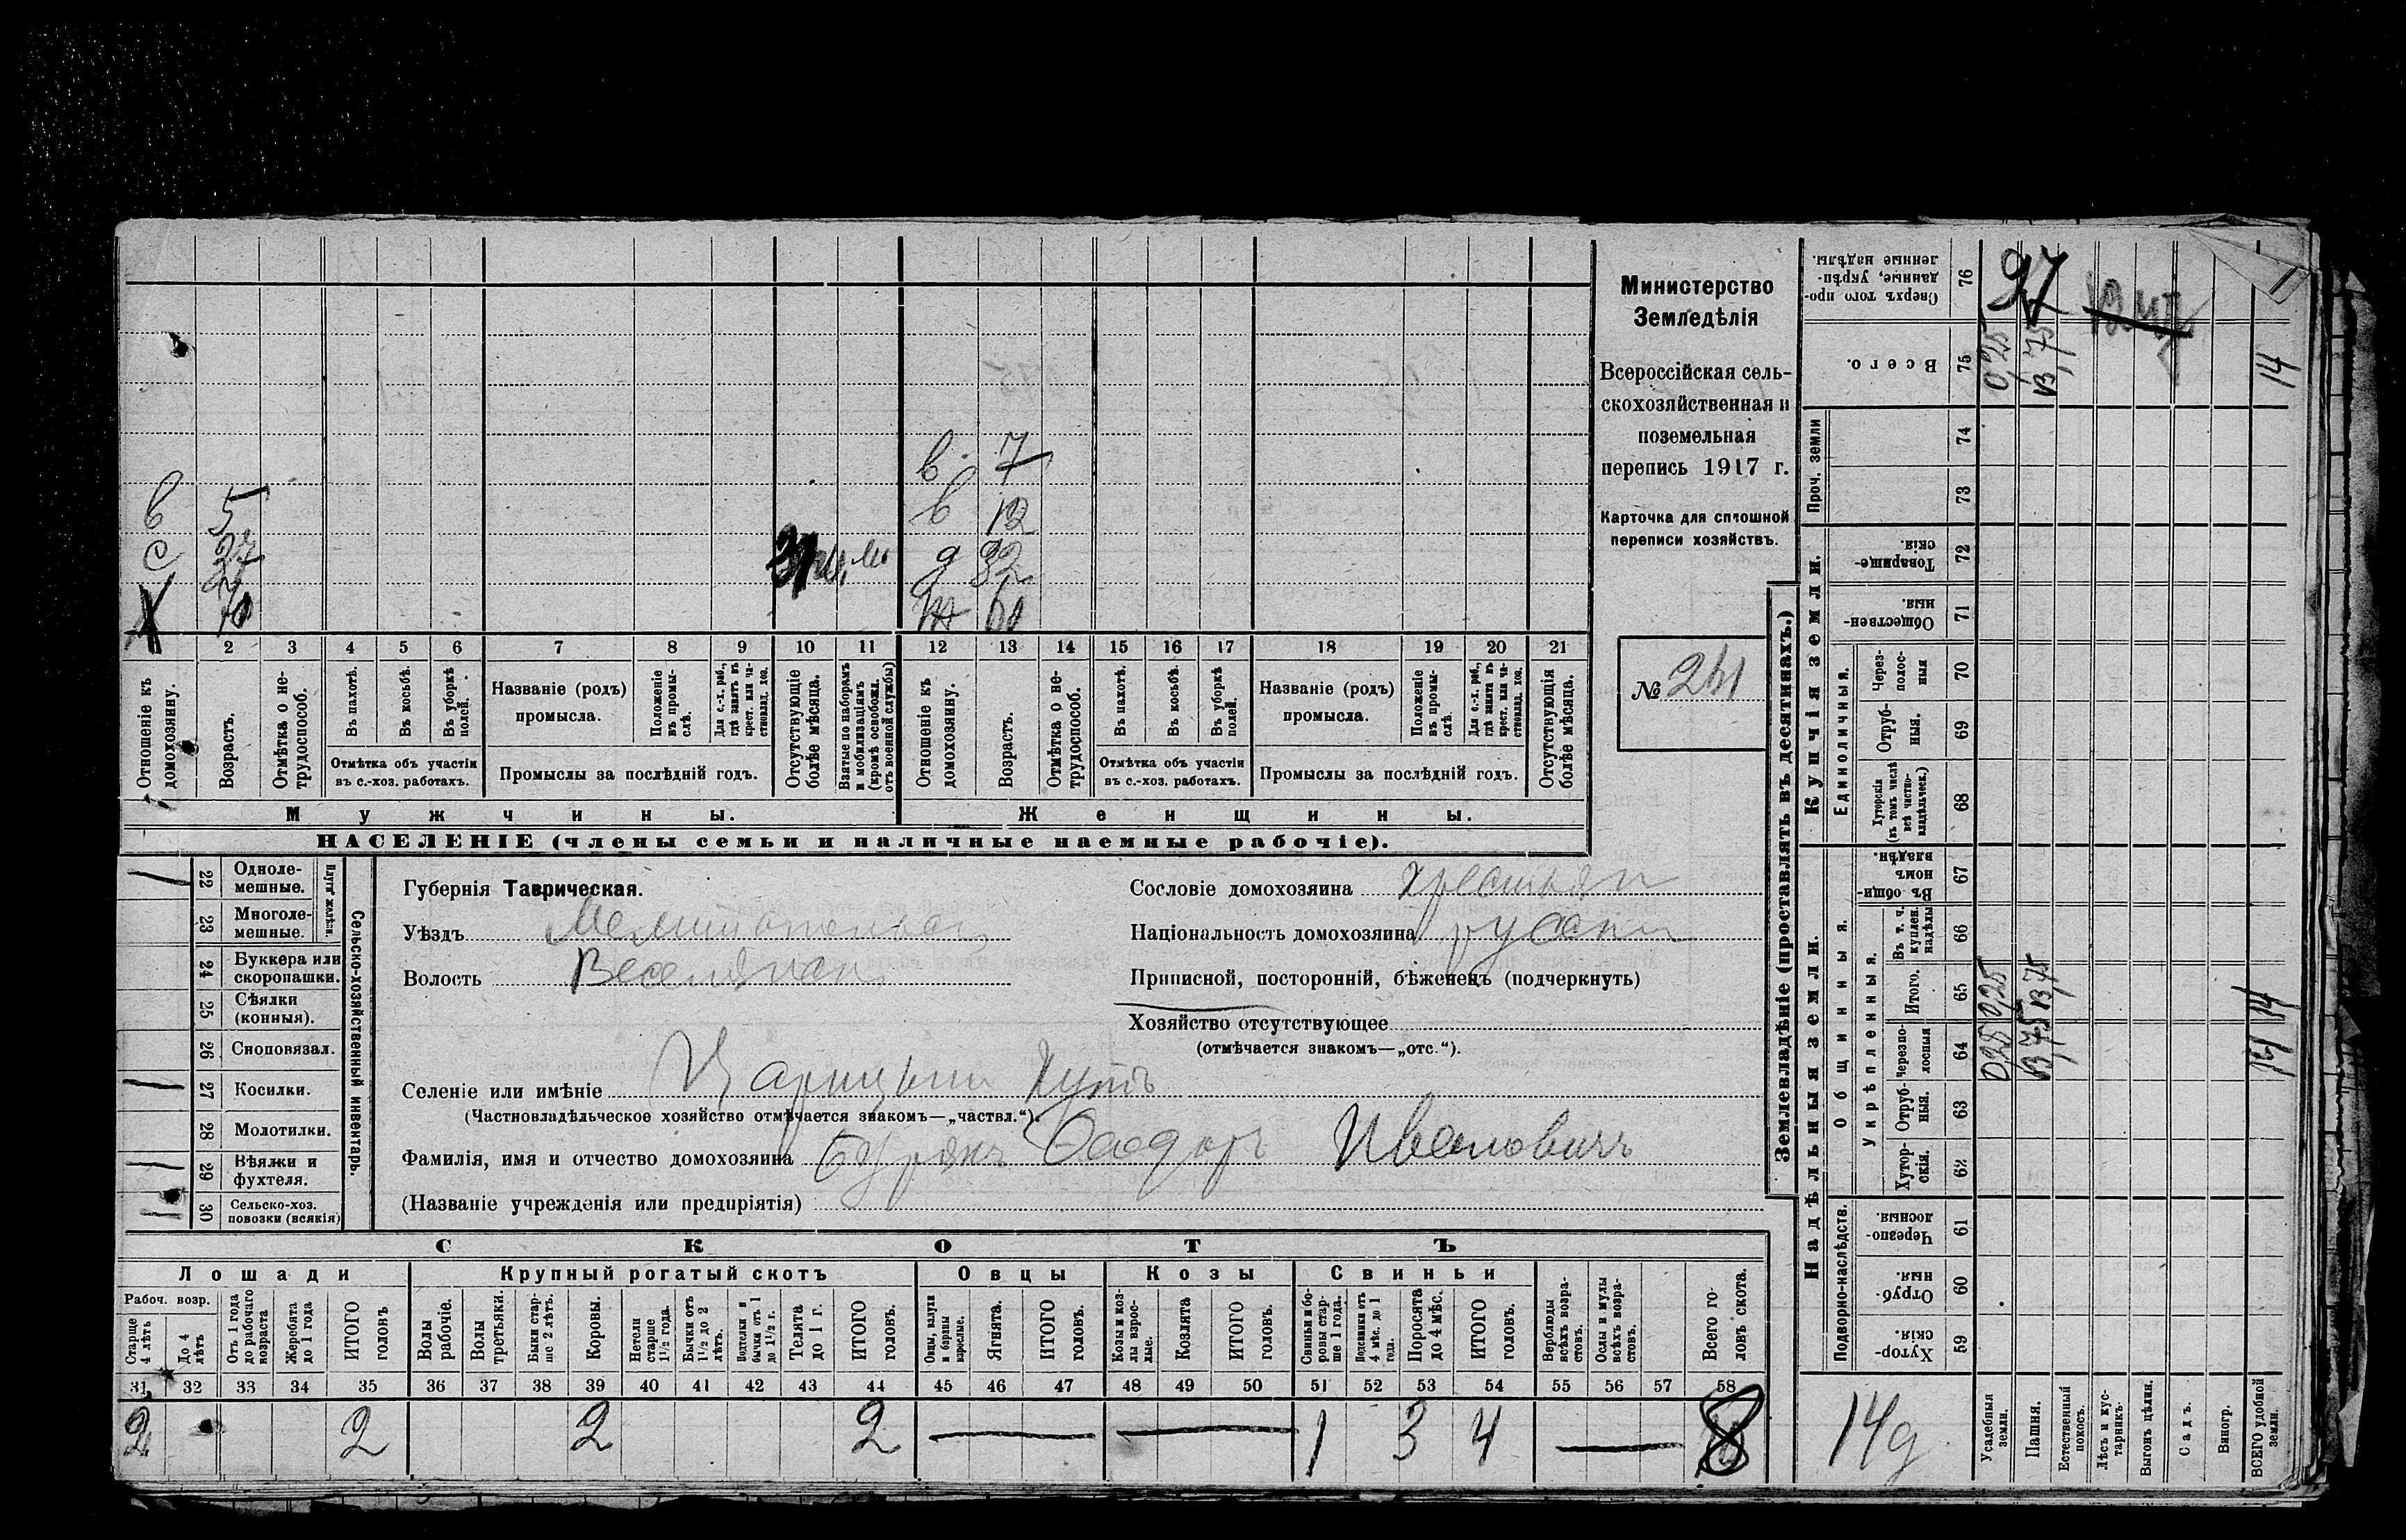 в 7
в 5 в 12
с 27 д 32
Х 70 60
1 2 3 4 5 6 7 8 9 10 11 12 13 14 15 16 17 18 19 20 21
Отношеніе къ домохозяину.
Возрастъ.
Отмѣтка о не-трудоспособ.
Въ пахотѣ.
Въ косьбѣ.
Въ уборкѣ полей.
Отмѣтка объ участіи
въ с.-хоз. работахъ.
Названіе (родъ)
промысла.
Положеніе въ промы-слѣ.
Для с.-х. раб., гдѣ занятъ въ крест. или ча-стновлад. хоз.
Промыслы за послѣдній годъ.
Отсутствующіе болѣе мѣсяца.
Взятые по наборамъ и мобилизаціямъ (кромѣ освобожд. отъ военной службы)
Отношеніе къ домохозяину.
Возрастъ.
Отмѣтка о не-трудоспособ.
Въ пахотѣ.
Въ косьбѣ.
Въ уборкѣ полей.
Отмѣтка объ участіи
въ с.-хоз. работахъ.
Названіе (родъ)
промысла.
Положеніе въ промы-слѣ.
Для с.-х. раб., гдѣ занята въ крест. или ча-стновлад. хоз.
Промыслы за послѣдній годъ.
Отсутствующія болѣе мѣсяца.
Мужчины. Женщины.
НАСЕЛЕНІЕ (члены семьи и наличные наемные рабочіе).
Министерство
Земледѣлія
Всероссійская сель-
скохозяйственная и
поземельная
перепись 1917 г.
Карточка для сплошной
переписи хозяйствъ.
№ 241
22 Одноле-мешные.
23 Многоле-мешные.
Плуги желѣзн.
24 Буккера или скоропашки.
25 Сѣялки (конныя).
26 Сноповязал.
27 Косилки.
28 Молотилки.
29 Вѣялки и фухтеля.
30 Сельско-хоз. повозки (всякія)
Сельско-хозяйственный инвентарь.
Губернія Таврическая.
Уѣздъ Мелитопольскій
Волость Веселянская
Сословіе домохозяина крестьян
Національность домохозяина русский
Приписной, посторонній, бѣженецъ (подчеркнуть)
Хозяйство отсутствующее
(отмѣчается знакомъ—„отс.“).
Селеніе или имѣніе Царицын Кутъ
(Частновладѣльческое хозяйство отмѣчается знакомъ—„частвл.“).
Фамилія, имя и отчество домохозяина Бурякъ Феодоръ Ивановичъ
(Названіе учрежденія или предпріятія)
СКОТЪ
Лошади Крупный рогатый скотъ Овцы Козы Свиньи
Рабоч. возр.
Старше 4 лѣтъ
До 4 лѣтъ
Отъ 1 года до рабочаго возраста
Жеребята до 1 года
ИТОГО головъ
Волы рабочіе.
Волы третьяки.
Быки стар-ше 2 лѣтъ.
Коровы.
Нетели старше 1½ года.
Бычки отъ 1½ до 2 лѣтъ.
Подтелки и бычки отъ 1 до 1½ г.
Телята до 1 г.
ИТОГО головъ.
Овцы, валухи и бараны взрослые.
Ягнята.
ИТОГО головъ.
Козы и коз-лы взрос-лые.
Козлята
ИТОГО головъ.
Свиньи и бо-ровы стар-ше 1 года.
Подсвинки отъ 4 мѣс. до 1 года
Поросята до 4 мѣс.
ИТОГО головъ.
Верблюды всѣхъ возра-стовъ.
Ослы и мулы всѣхъ возра-стовъ.
Всего го-ловъ скота.
31 32 33 34 35 36 37 38 39 40 41 42 43 44 45 46 47 48 49 50 51 52 53 54 55 56 57 58
2 2 2 2 1 3 4 8
Землевладѣніе (проставлять въ десятинахъ.)
Надѣльныя земли. Купчія земли.
Подворно-наслѣдств.
Общинныя.
Укрѣпленныя.
Единоличныя.
Проч. земли
Сверхъ того про-данные, укрѣп-ленные надѣлы. 76
Всего. 75
74
73
Товарище-скія. 72
Обществен-ныя. 71
Через-полос-ныя 70
Отруб-ныя. 69
Хуторскія (въ томъ числѣ всѣ частно-владѣльческ.) 68
Въ общин-номъ владѣн. 67
Въ т. ч. куплен. надѣлы 66
Итого. 65
Черезпо-лосныя 64
Отруб-ныя. 63
Хутор-скія. 62
Черезпо-лосныя. 61
Отруб-ныя 60
Хутор-скія. 59
97
0,25 13,75 14
0,25 13,75 14
0,25 13,75 14
14 д
Усадебныя земли.
Пашня.
Естественный покосъ.
Лѣсъ и кус-тарникъ.
Выгонъ цѣлин.
Садъ.
Виногр.
ВСЕГО удобной земли.